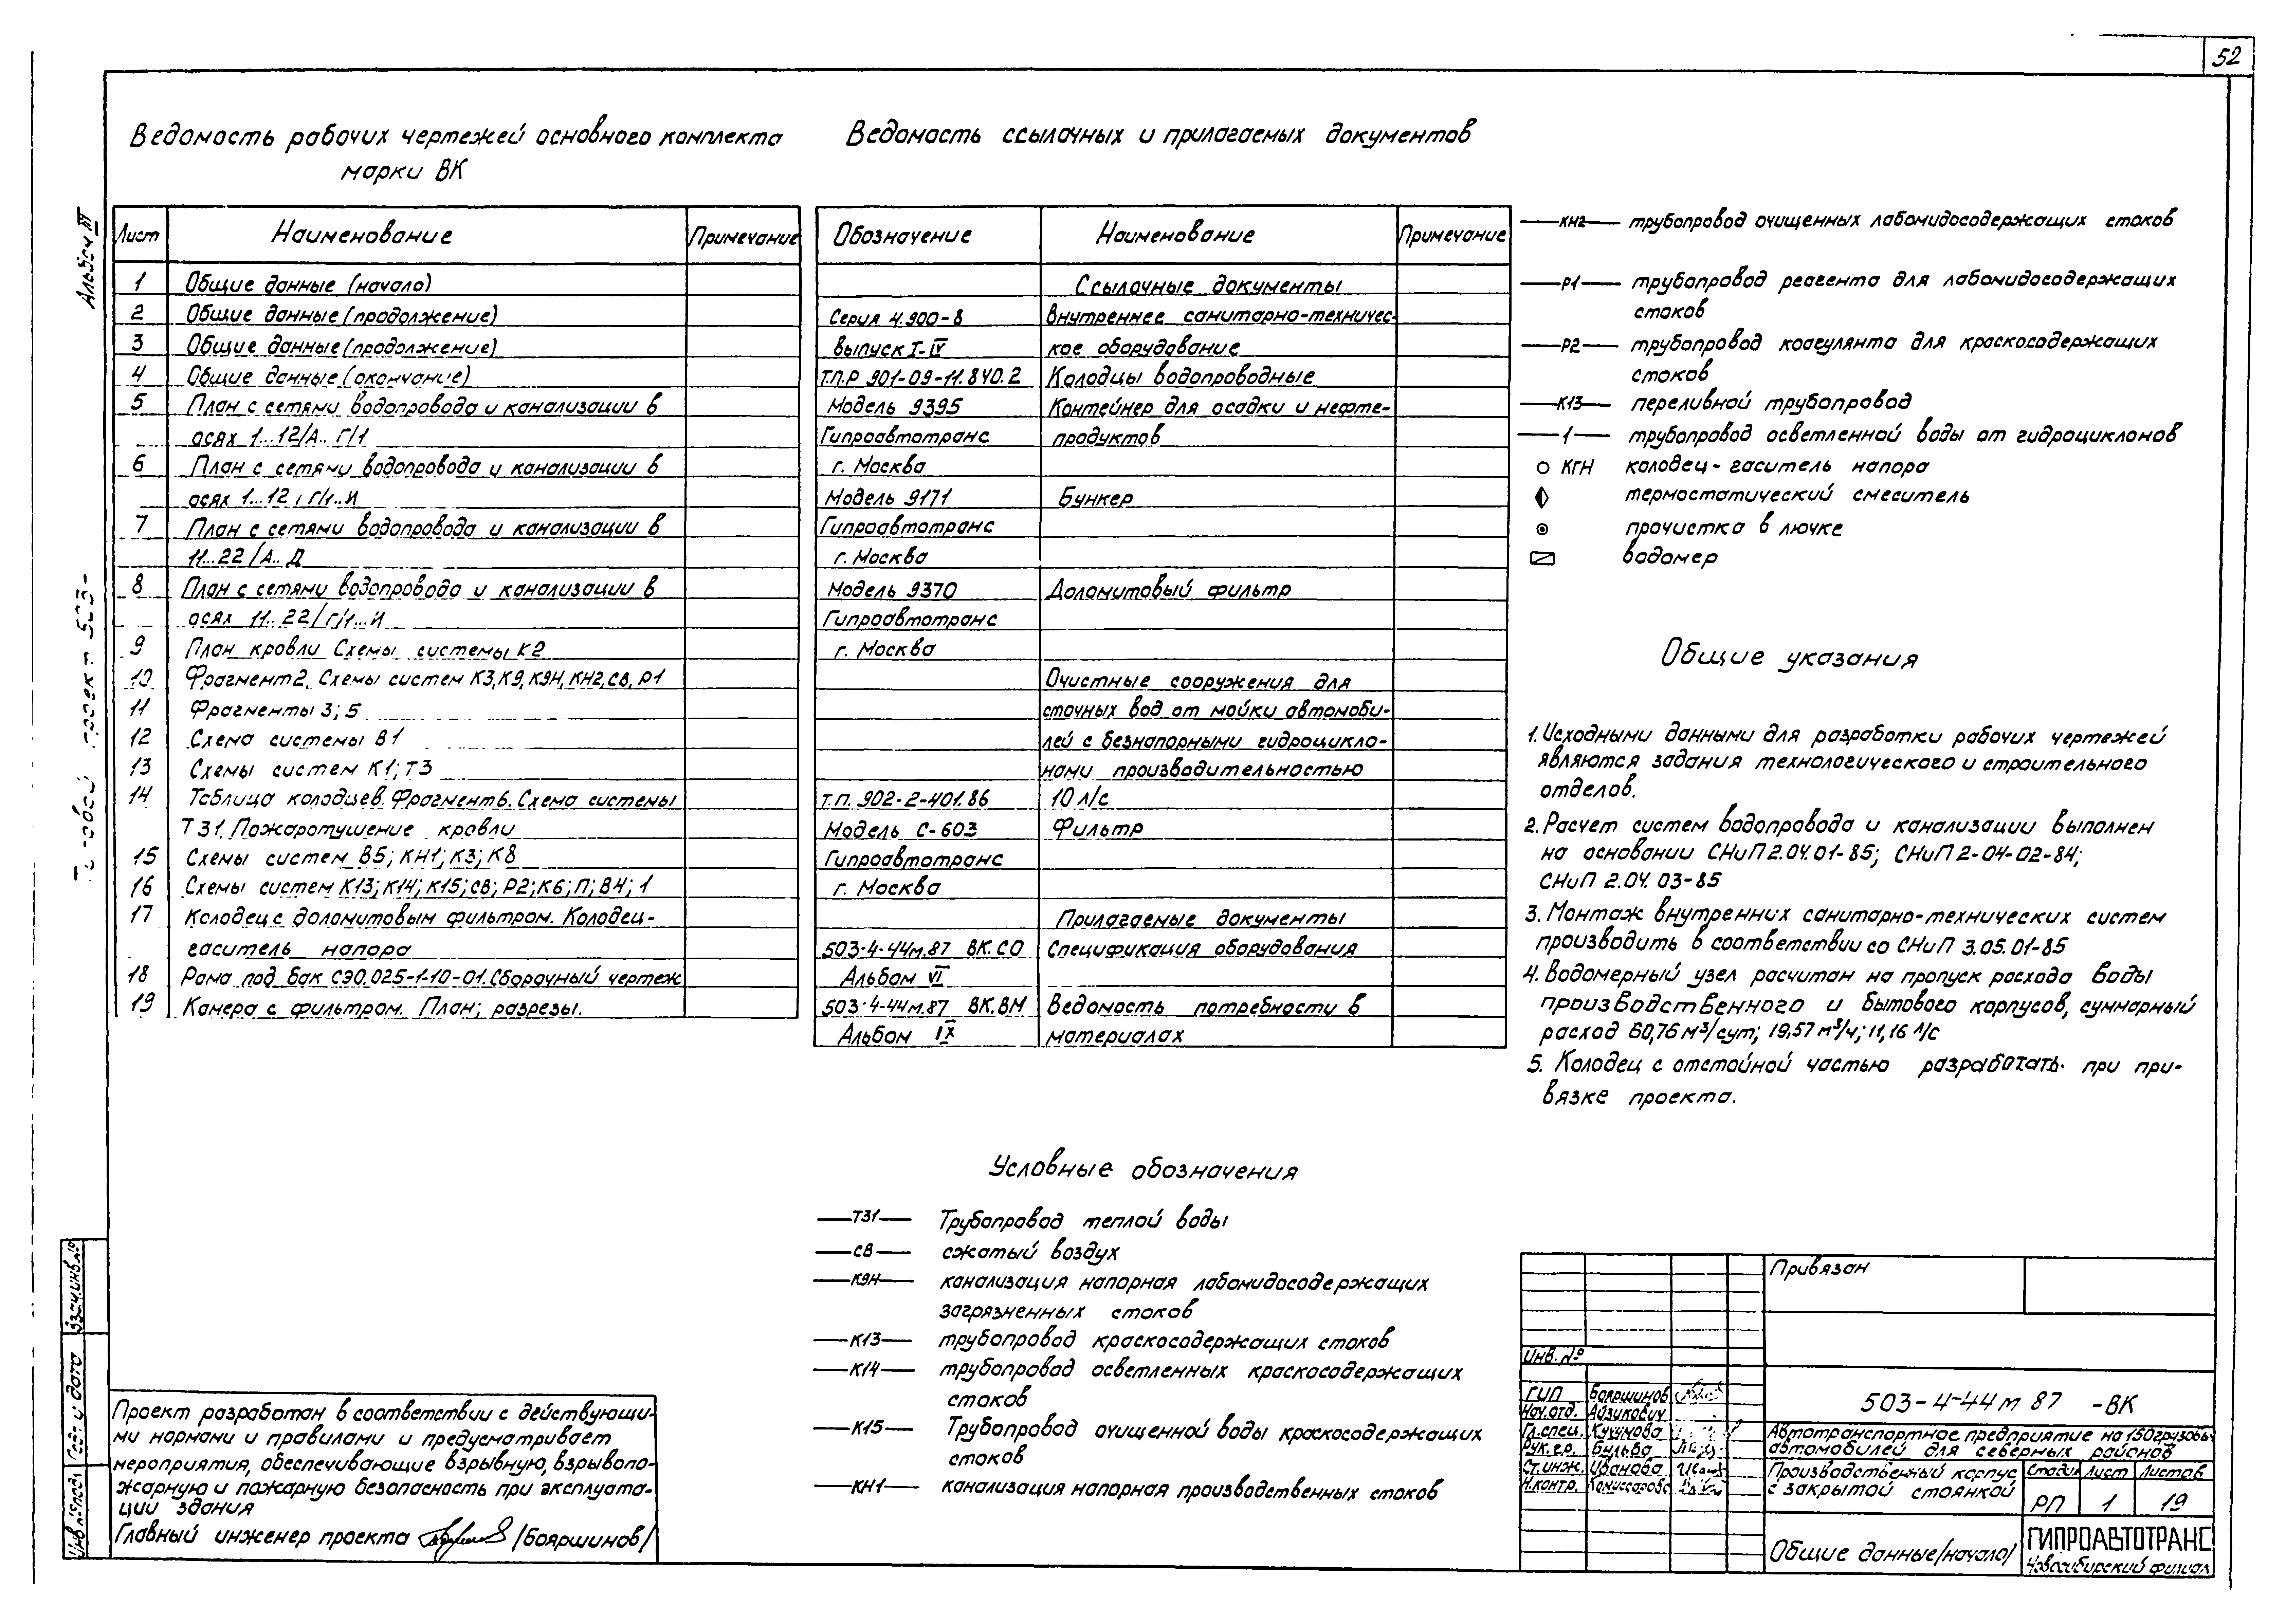 52
Ведомость рабочих чертежей основного комплекта
марки ВК
Лист Наименование Примечание
1 Общие данные (начало)
2 Общие данные (продолжение)
3 Общие данные (продолжение)
4 Общие данные (окончание)
5 План с сетями водопровода и канализации в
осях 1...12/А.. Г/1
6 План с сетями водопровода и канализации в
осях 1...12 / Г/1..И
7 План с сетями водопровода и канализации в
11...22 /А.. Д
8 План с сетями водопровода и канализации в
осях 11.. 22/Г/1...И
9 План кровли Схемы системы К2
10 Фрагмент 2. Схемы систем К3, К9, К9Н, КН2, СВ, Р1
11 Фрагменты 3; 5
12 Схема системы В1
13 Схемы систем К1; Т3
14 Таблица колодцев. Фрагмент 6. Схема системы
Т31. Пожаротушение кровли
15 Схемы систем В5; КН1; К3; К8
16 Схемы систем К13; К14; К15; СВ; Р2; К6; П; В4; 1
17 Колодец с доломитовым фильтром. Колодец-
гаситель напора
18 Рама под бак СЭО.025-1-10-01. Сборочный чертеж
19 Камера с фильтром. План; разрезы.
Ведомость ссылочных и прилагаемых документов
Обозначение Наименование Примечание
Ссылочные документы
Серия 4.900-8 Внутреннее санитарно-техничес-
выпуск I-IV кое оборудование
Т.П.Р 901-09-11.840.2 Колодцы водопроводные
Модель 9395 Контейнер для осадки и нефте-
Гипроавтотранс продуктов
г. Москва
Модель 9171 Бункер
Гипроавтотранс
г. Москва
Модель 9370 Доломитовый фильтр
Гипроавтотранс
г. Москва
Очистные сооружения для
сточных вод от мойки автомоби-
лей с безнапорными гидроцикло-
нами производительностью
т.п. 902-2-401.86 10 л/с
Модель С-603 Фильтр
Гипроавтотранс
г. Москва
Прилагаемые документы
503-4-44м.87 ВК.СО Спецификация оборудования
Альбом VI
503-4-44м.87 ВК.ВМ Ведомость потребности в
Альбом IX материалах
Условные обозначения
Т31 Трубопровод теплой воды
СВ сжатый воздух
К9Н канализация напорная лабомидосодержащих
загрязненных стоков
К13 трубопровод краскосодержащих стоков
К14 трубопровод осветленных краскосодержащих
стоков
К15 Трубопровод очищенной воды краскосодержащих
стоков
КН1 канализация напорная производственных стоков
КН2 трубопровод очищенных лабомидосодержащих стоков
Р1 трубопровод реагента для лабомидосодержащих
стоков
Р2 трубопровод коагулянта для краскосодержащих
стоков
К13 переливной трубопровод
1 трубопровод осветленной воды от гидроциклонов
КГН колодец-гаситель напора
термостатический смеситель
прочистка в лючке
водомер
Общие указания
1. Исходными данными для разработки рабочих чертежей
являются задания технологического и строительного
отделов.
2. Расчет систем водопровода и канализации выполнен
на основании СНиП 2.04.01-85; СНиП 2-04-02-84;
СНиП 2.04.03-85
3. Монтаж внутренних санитарно-технических систем
производить в соответствии со СНиП 3.05.01-85
4. Водомерный узел расчитан на пропуск расхода воды
производственного и бытового корпусов, суммарный
расход 60,76 м³/сут; 19,57 м³/ч; 11,16 л/с
5. Колодец с отстойной частью разработать при при-
вязке проекта.
Проект разработан в соответствии с действующи-
ми нормами и правилами и предусматривает
мероприятия, обеспечивающие взрывную, взрывопо-
жарную и пожарную безопасность при эксплуата-
ции здания
Главный инженер проекта /Бояршинов/
Привязан
Инв. №
503-4-44м 87 -ВК
ГИП Бояршинов
Нач.отд. Айзикович
Гл.спец. Кукунова
Рук.гр. Бульва
Ст.инж. Иванова
Н.контр. Комиссарова
Автотранспортное предприятие на 150 грузовых
автомобилей для северных районов
Производственный корпус
с закрытой стоянкой
Стадия Лист Листов
РП 1 19
Общие данные /начало/
ГИПРОАВТОТРАНС
Новосибирский филиал
Альбом III
проект 503-
Взам.инв.№
Подп и дата
Инв № подл